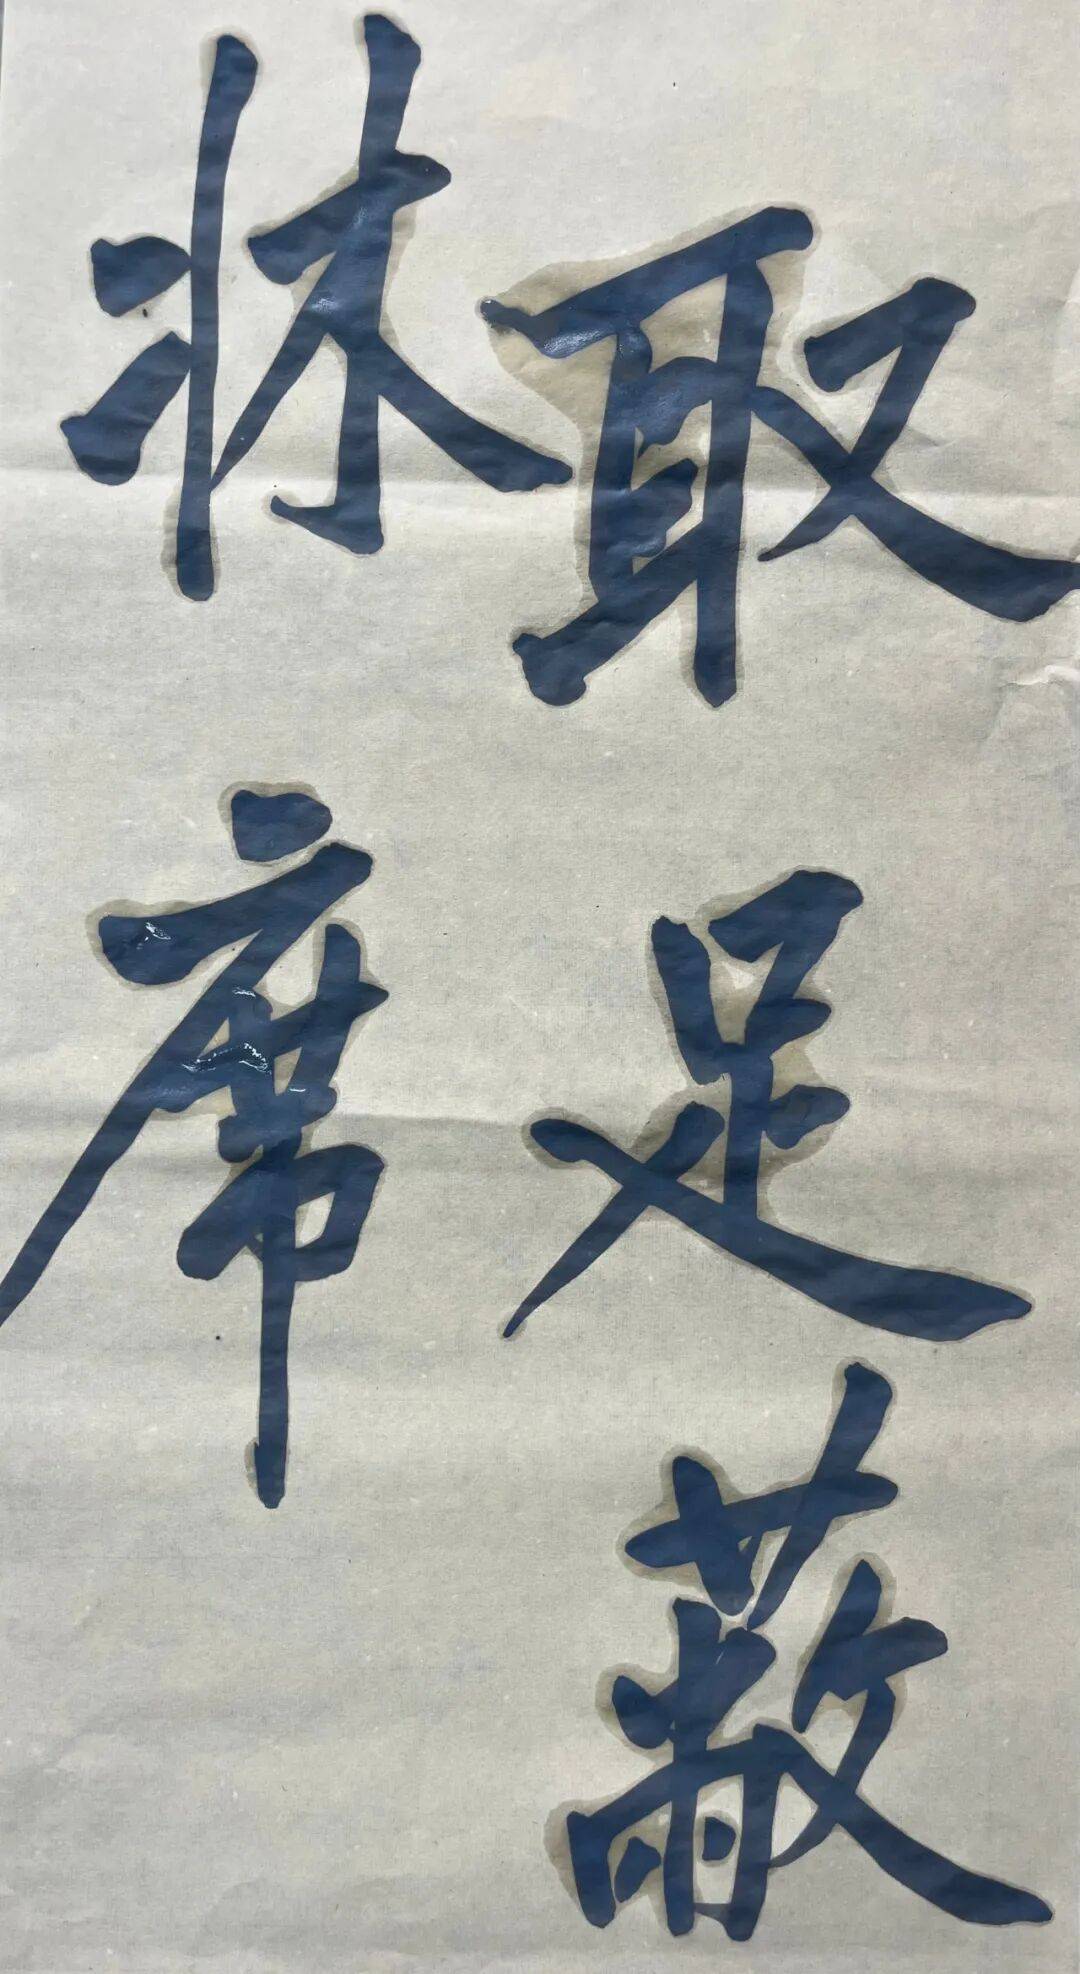 取足蔽
牀席